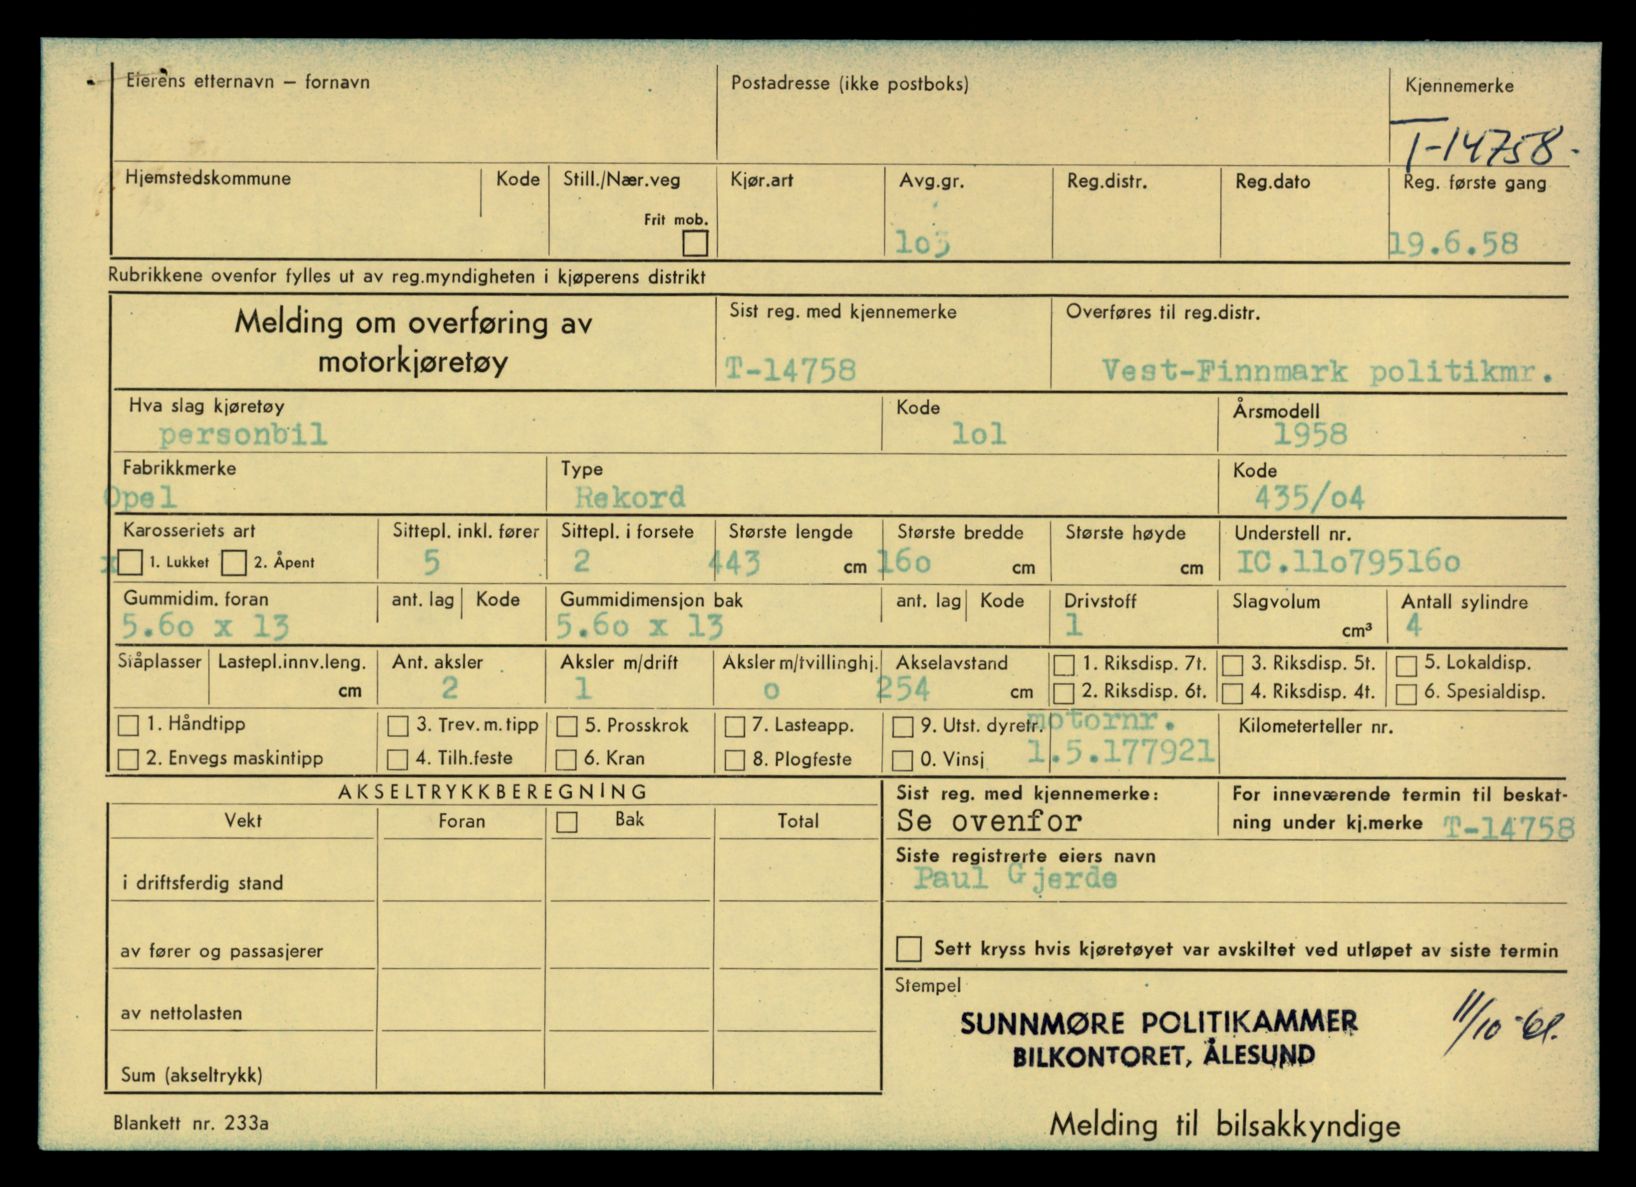 Eierens etternavn – fornavn   Postadresse (ikke postboks)   Kjennemerke
T-14758.
Hjemstedskommune   Kode   Still./Nær.veg   Kjør.art   Avg.gr.   Reg.distr.   Reg.dato   Reg. første gang
Frit mob. ☐   lo3   19.6.58
Rubrikkene ovenfor fylles ut av reg.myndigheten i kjøperens distrikt
Melding om overføring av   Sist reg. med kjennemerke   Overføres til reg.distr.
motorkjøretøy   T-14758   Vest-Finnmark politikmr.
Hva slag kjøretøy   Kode   Årsmodell
personbil   lol   1958
Fabrikkmerke   Type   Kode
Opel   Rekord   435/o4
Karosseriets art   Sittepl. inkl. fører   Sittepl. i forsete   Største lengde   Største bredde   Største høyde   Understell nr.
x ☐ 1. Lukket ☐ 2. Åpent   5   2   443 cm   16o cm   cm   IC.11o79516o
Gummidim. foran   ant. lag   Kode   Gummidimensjon bak   ant. lag   Kode   Drivstoff   Slagvolum   Antall sylindre
5.6o x 13   5.6o x 13   1   cm³   4
Ståplasser   Lastepl.innv.leng.   Ant. aksler   Aksler m/drift   Aksler m/tvillinghj.   Akselavstand   ☐ 1. Riksdisp. 7t.   ☐ 3. Riksdisp. 5t.   ☐ 5. Lokaldisp.
cm   2   1   o   254 cm   ☐ 2. Riksdisp. 6t.   ☐ 4. Riksdisp. 4t.   ☐ 6. Spesialdisp.
☐ 1. Håndtipp   ☐ 3. Trev. m. tipp   ☐ 5. Prosskrok   ☐ 7. Lasteapp.   ☐ 9. Utst. dyretr.   motornr.   Kilometerteller nr.
☐ 2. Envegs maskintipp   ☐ 4. Tilh.feste   ☐ 6. Kran   ☐ 8. Plogfeste   ☐ 0. Vinsj   1.5.177921
AKSELTRYKKBEREGNING   Sist reg. med kjennemerke:   For inneværende termin til beskat-
Vekt   Foran   ☐ Bak   Total   Se ovenfor   ning under kj.merke T-14758
Siste registrerte eiers navn
i driftsferdig stand   Paul Gjerde
av fører og passasjerer   ☐ Sett kryss hvis kjøretøyet var avskiltet ved utløpet av siste termin
Stempel
av nettolasten   SUNNMØRE POLITIKAMMER   11/10-61.
BILKONTORET, ÅLESUND
Sum (akseltrykk)
Blankett nr. 233a   Melding til bilsakkyndige